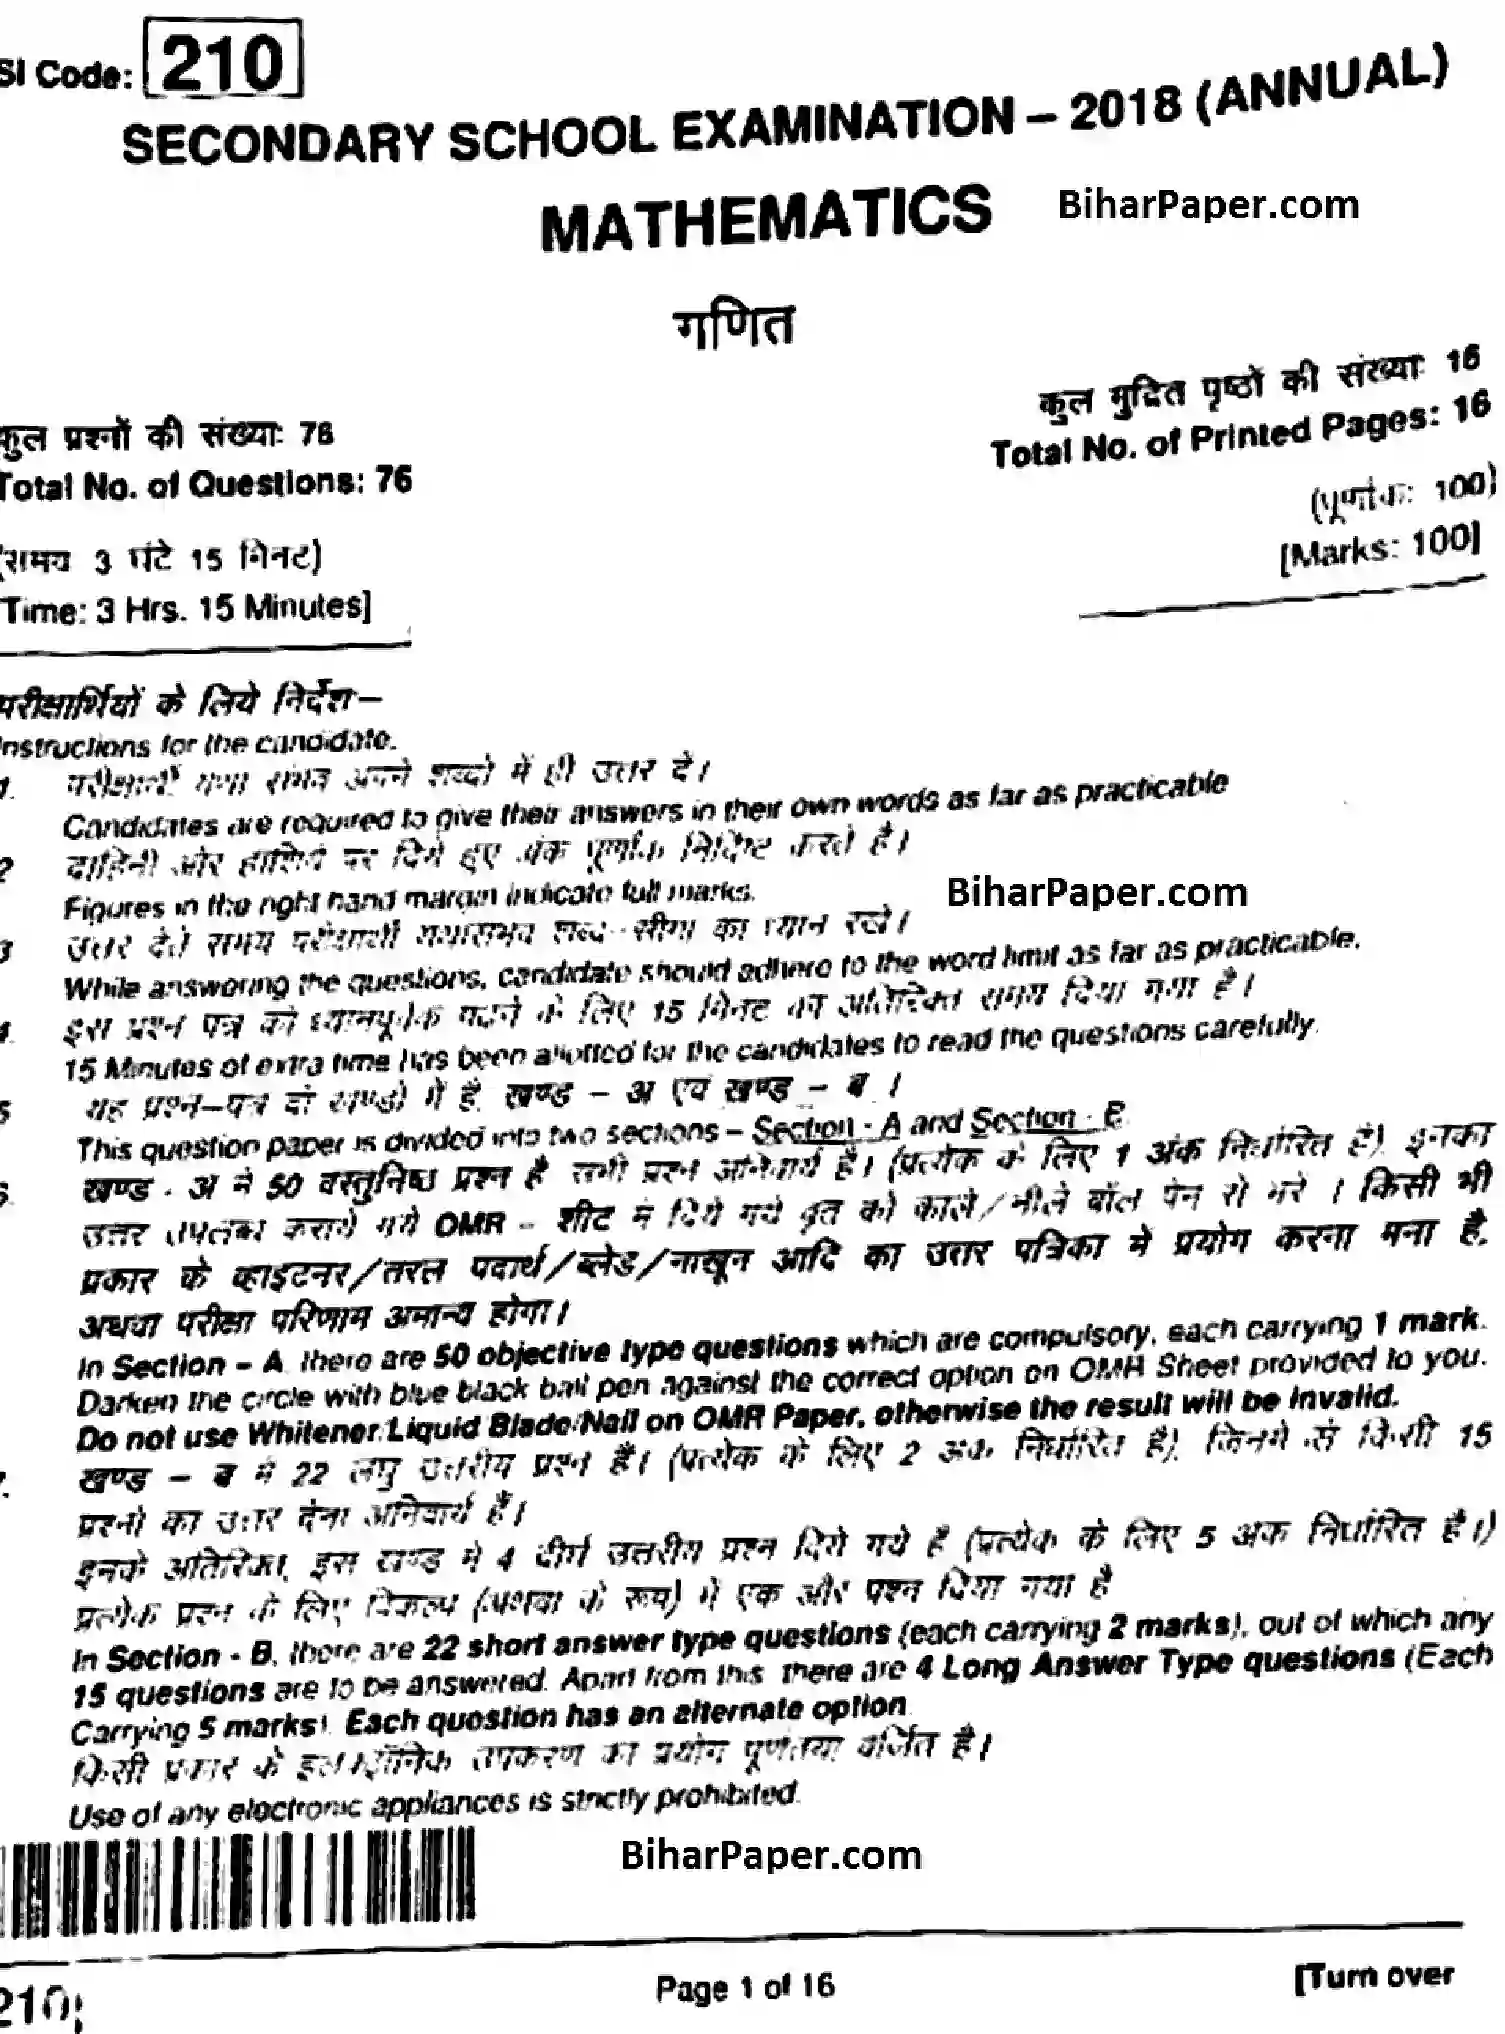 SI Code: 210
SECONDARY SCHOOL EXAMINATION – 2018 (ANNUAL)
MATHEMATICS
BiharPaper.com
गणित
कुल मुद्रित पृष्ठों की संख्याः 16
Total No. of Printed Pages: 16
कुल प्रश्नों की संख्याः 76
Total No. of Questions: 76
(पूर्णांकः 100)
[Marks: 100]
(समय 3 घंटे 15 मिनट)
Time: 3 Hrs. 15 Minutes]
परीक्षार्थियों के लिये निर्देश–
Instructions for the candidate.
1. परीक्षार्थी यथा संभव अपने शब्दो में ही उत्तर दें।
Candidates are required to give their answers in their own words as far as practicable
2 दाहिनी ओर हाशिये पर दिये हुए अंक पूर्णांक निर्दिष्ट करते है।
Figures in the right hand margin indicate full marks.
BiharPaper.com
3 उत्तर देते समय परीक्षार्थी यथासंभव शब्द–सीमा का ध्यान रखे।
While answering the questions, candidate should adhere to the word limit as far as practicable.
4. इस प्रश्न पत्र को ध्यानपूर्वक पढ़ने के लिए 15 मिनट का अतिरिक्त समय दिया गया है।
15 Minutes of extra time has been allotted for the candidates to read the questions carefully.
5 यह प्रश्न–पत्र दो खण्डो में है. खण्ड – अ एवं खण्ड – ब ।
This question paper is divided into two sections – Section - A and Section - B
6. खण्ड - अ में 50 वस्तुनिष्ठ प्रश्न है सभी प्रश्न अनिवार्य है। (प्रत्येक के लिए 1 अंक निर्धारित है). इनका
उत्तर उपलब्ध कराये गये OMR – शीट में दिये गये वृत को काले/नीले बॉल पेन से भरे । किसी भी
प्रकार के व्हाइटनर/तरल पदार्थ/ब्लेड/नाखून आदि का उत्तर पत्रिका मे प्रयोग करना मना है,
अथवा परीक्षा परिणाम अमान्य होगा।
In Section – A. there are 50 objective type questions which are compulsory, each carrying 1 mark.
Darken the circle with blue black ball pen against the correct option on OMR Sheet provided to you.
Do not use Whitener/Liquid Blade/Nail on OMR Paper, otherwise the result will be invalid.
7. खण्ड – ब में 22 लघु उत्तरीय प्रश्न हैं। (प्रत्येक के लिए 2 अंक निर्धारित है), जिनमे से किसी 15
प्रश्नो का उत्तर देना अनिवार्य हैं।
इनके अतिरिक्त, इस खण्ड मे 4 दीर्घ उत्तरीय प्रश्न दिये गये है (प्रत्येक के लिए 5 अंक निर्धारित है।)
प्रत्येक प्रश्न के लिए विकल्प (अथवा के रूप) में एक और प्रश्न दिया गया है
In Section - B, there are 22 short answer type questions (each carrying 2 marks), out of which any
15 questions are to be answered. Apart from this there are 4 Long Answer Type questions (Each
Carrying 5 marks). Each question has an alternate option
किसी प्रकार के इलेक्ट्रॉनिक उपकरण का प्रयोग पूर्णतया वर्जित है।
Use of any electronic appliances is strictly prohibited.
BiharPaper.com
210;
Page 1 of 16
[Turn over